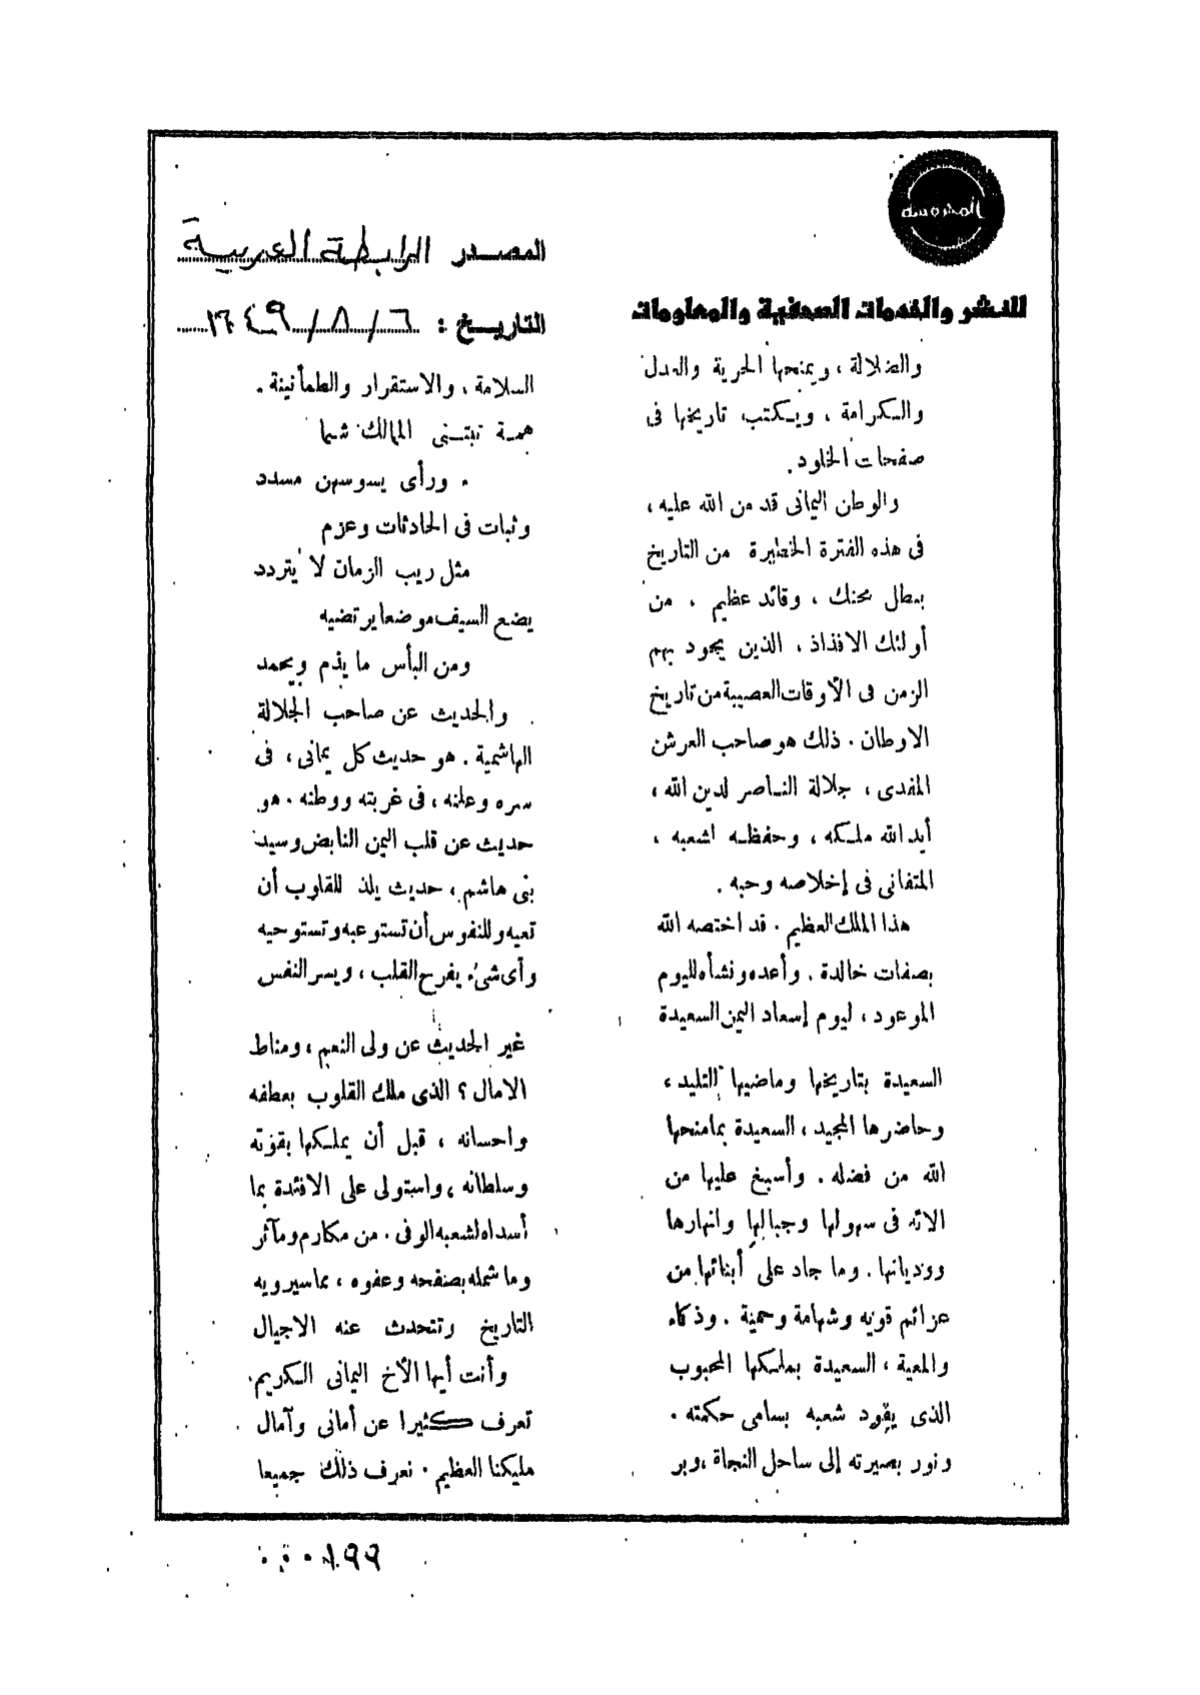 المحروسة
للنشر والخدمات الصحفية والمعلومات
المصدر الرابطة العربية
التاريخ : ٦/٨/١٩٤٩
والضلالة ، ويمنحها الحرية والعدل
والكرامة ، ويكتب تاريخها فى
صفحات الخلود .
والوطن اليمانى قد من الله عليه ،
فى هذه الفترة الخطيرة من التاريخ
ببطل محنك ، وقائد عظيم ، من
أولئك الافذاذ ، الذين يجود بهم
الزمن فى الأوقات العصيبة من تاريخ
الاوطان . ذلك هو صاحب العرش
المفدى ، جلالة الناصر لدين الله ،
أيد الله ملكه ، وحفظه لشعبه ،
المتفانى فى إخلاصه وحبه .
هذا الملك العظيم . قد اختصه الله
بصفات خالدة . وأعده ونشأه لليوم
الموعود ، ليوم إسعاد اليمن السعيدة
السعيدة بتاريخها وماضيها التليد ،
وحاضرها المجيد ، السعيدة بما منحها
الله من فضله . وأسبغ عليها من
الائه فى سهولها وجبالها وانهارها
ووديانها . وما جاد على أبنائها من
عزائم قويه وشهامة وحمية . وذكاء
والمعية ، السعيدة بملكها المحبوب
الذى يقود شعبه بسامى حكمته .
ونور بصيرته إلى ساحل النجاة ، وبر
السلامة ، والاستقرار والطمأنينة .
همة تبتنى الممالك شما
ورأى يسوسهن مسدد
وثبات فى الحادثات وعزم
مثل ريب الزمان لا يتردد
يضع السيف موضعا يرتضيه
ومن البأس ما يذم ويحمد
والحديث عن صاحب الجلالة
الهاشمية . هو حديث كل يمانى ، فى
سره وعلنه ، فى غربته ووطنه . هو
حديث عن قلب اليمن النابض وسيد
بنى هاشم ، حديث يلذ للقلوب أن
تعيه وللنفوس أن تستوعبه وتستوحيه
وأى شىء يفرح القلب ، ويسر النفس
غير الحديث عن ولى النعم ، ومناط
الامال ؟ الذى ملك القلوب بعطفه
واحسانه ، قبل أن يملكها بقوته
وسلطانه ، واستولى على الافئدة بما
أسداه لشعبه الوفى . من مكارم ومآثر
وما شمله بصفحه وعفوه ، مما سيرويه
التاريخ وتتحدث عنه الاجيال
وأنت أيها الأخ اليمانى الكريم .
تعرف كثيرا عن أمانى وآمال
مليكنا العظيم . نعرف ذلك جميعا